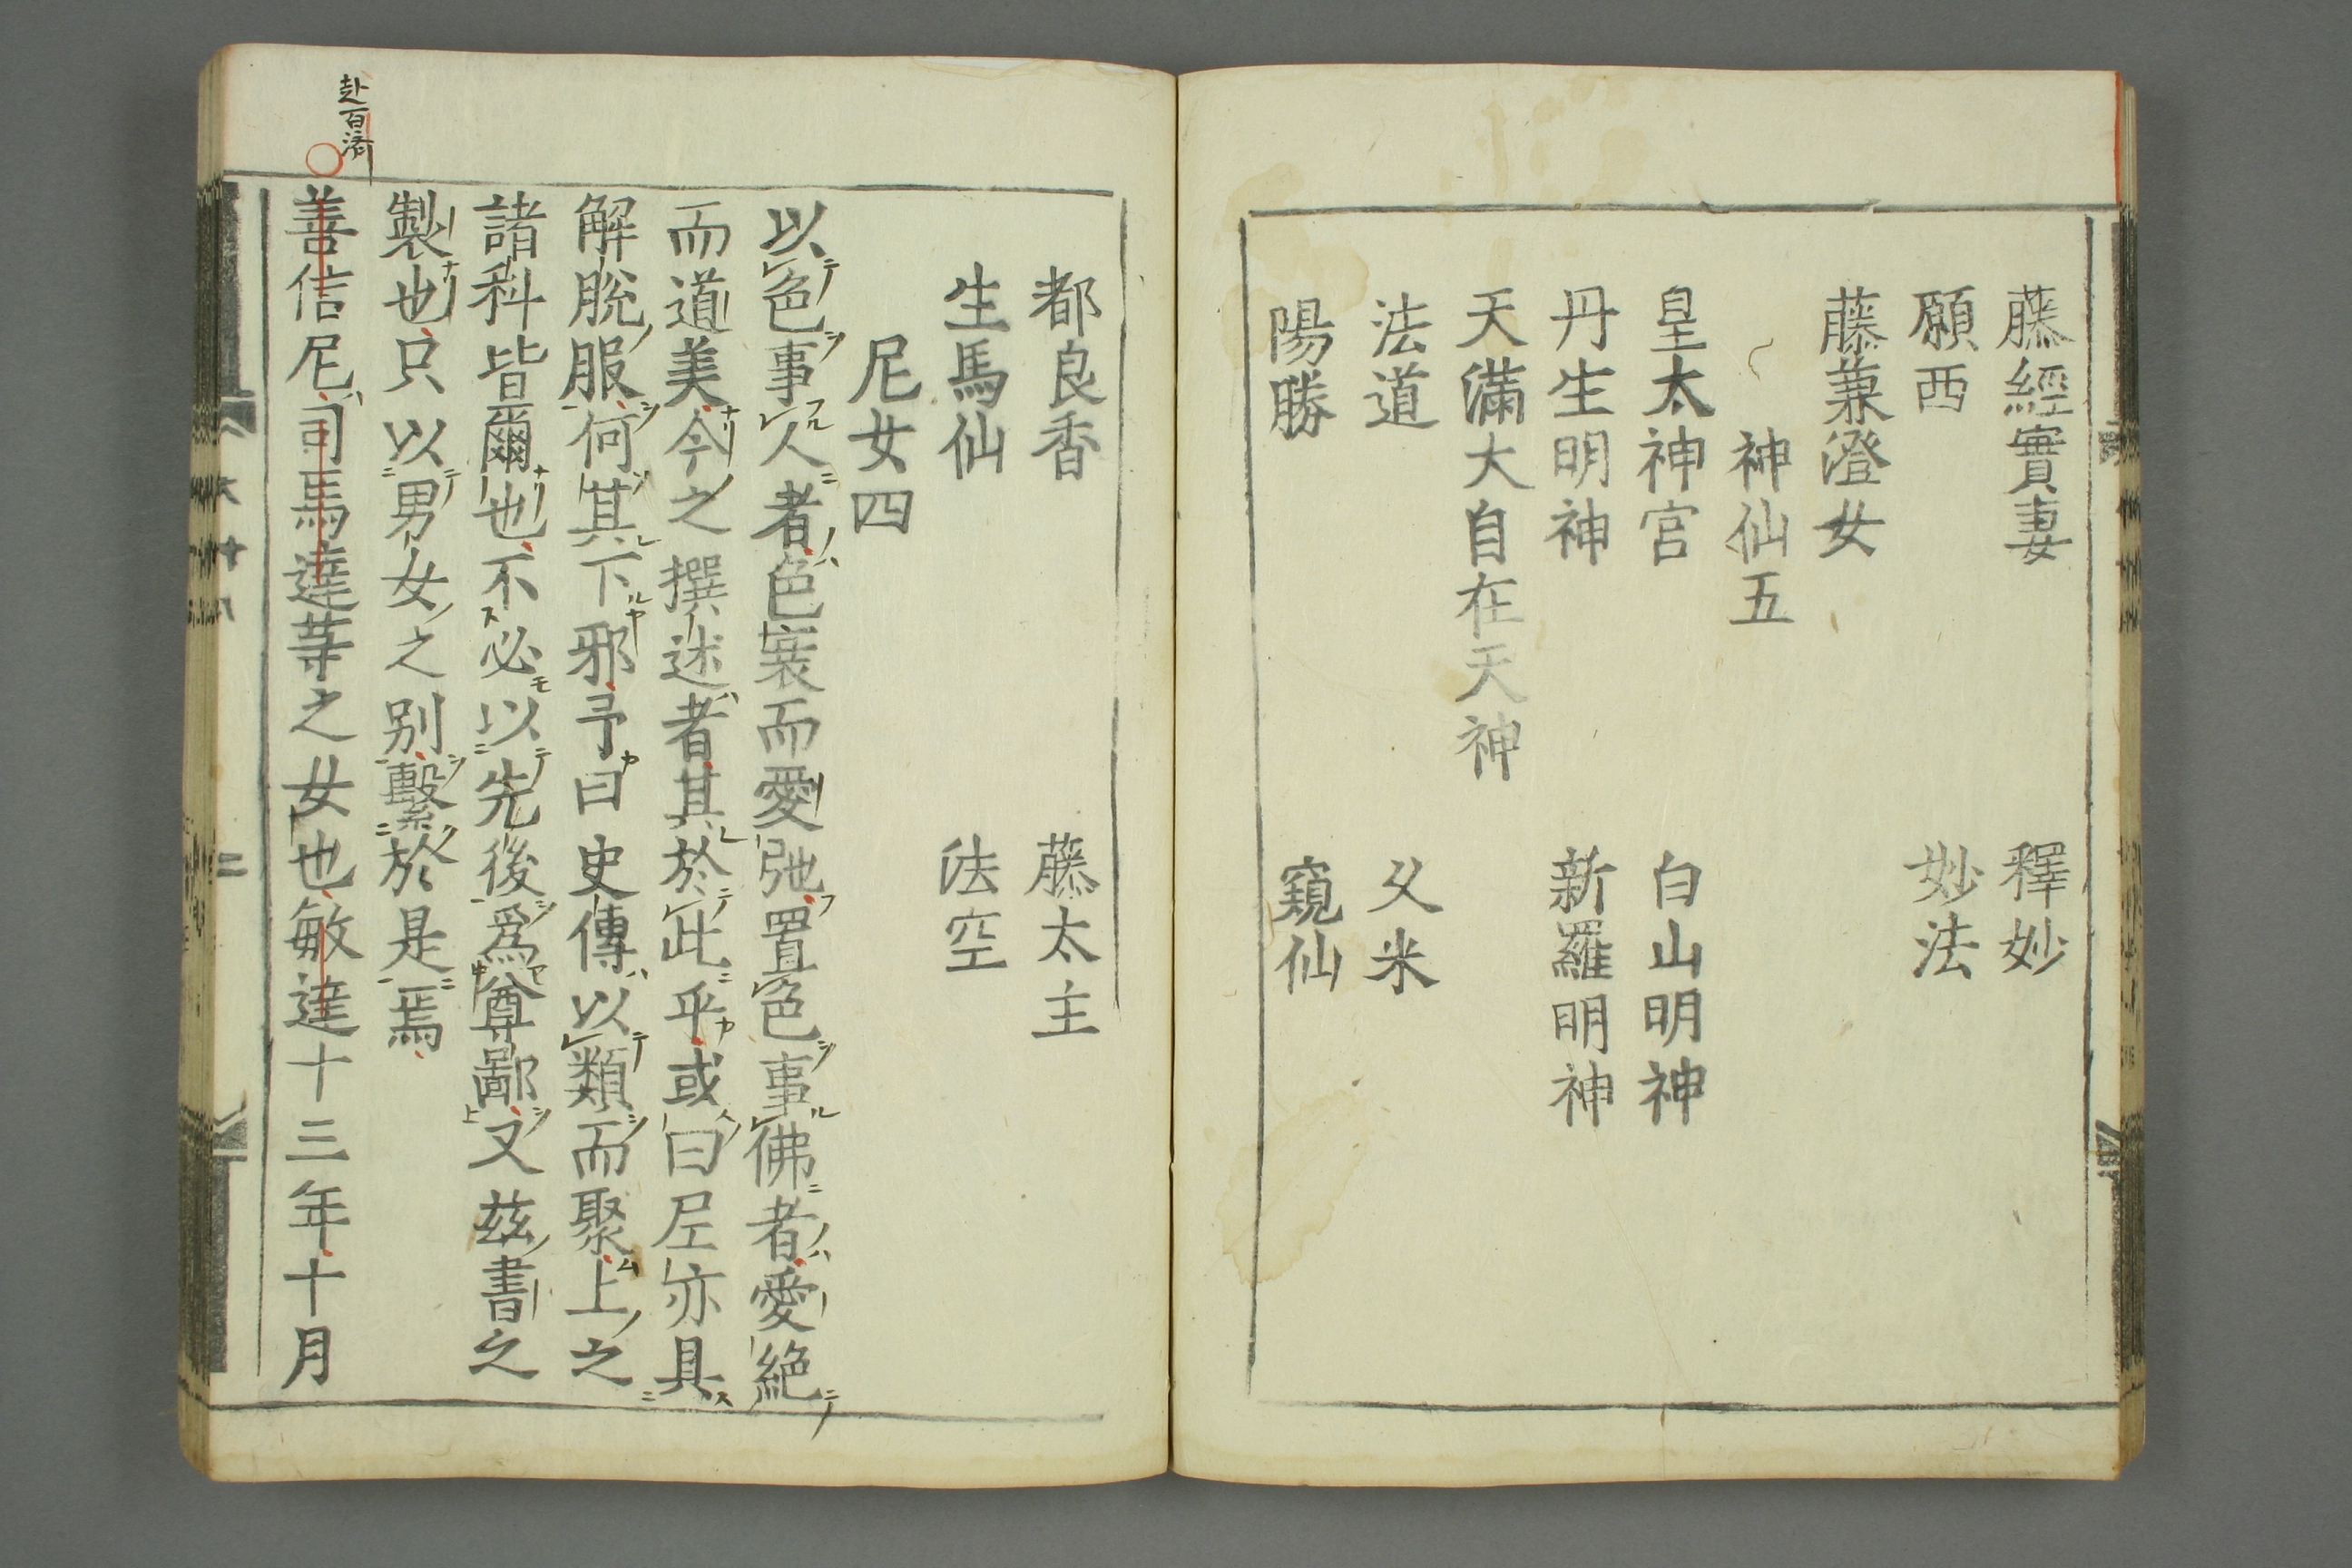 藤經實妻　釋妙
願西　妙法
藤兼澄女
神仙五
皇太神宮　白山明神
丹生明神　新羅明神
天滿大自在天神
法道　父米
陽勝　窺仙
都良香　藤太主
生馬仙　法空
尼女四
以色事人者色衰而愛弛置色事佛者愛絶
而道美今之撰述者其於此乎或曰尼亦具
解脫服何其下邪予曰史傳以類而聚上之
諸科皆爾也不必以先後爲尊鄙又茲書之
製也只以男女之別繫於是焉
赴百濟
善信尼司馬達等之女也敏達十三年十月